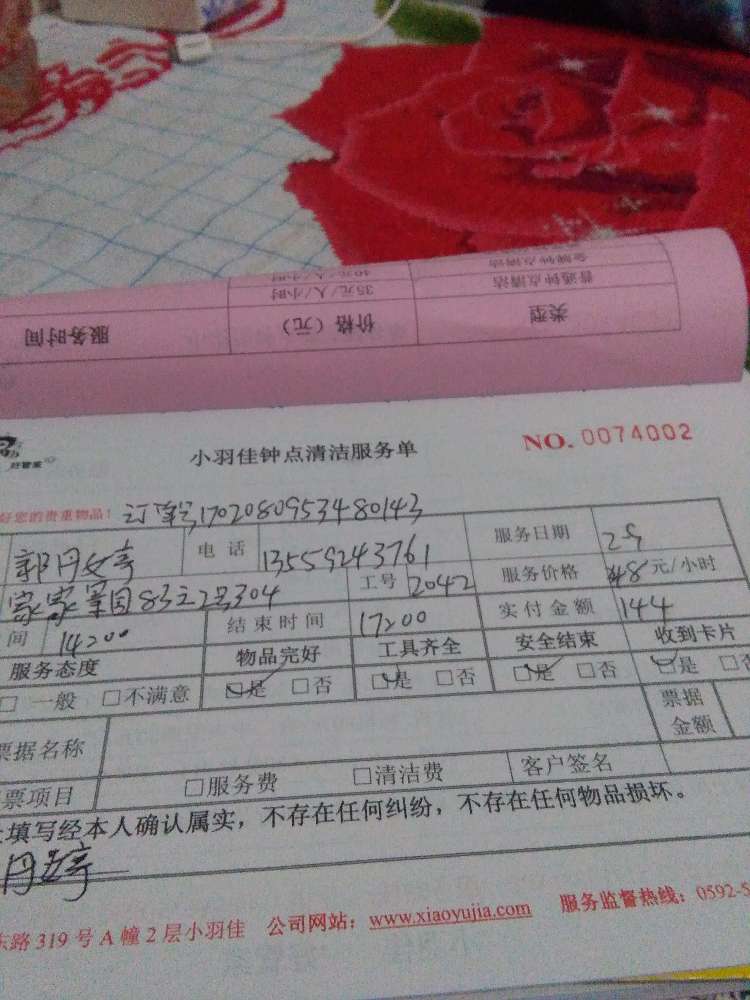 类型 价格（元） 服务时间
普通钟点清洁 35元/人/小时
金牌钟点清洁 40元/人/小时
好管家
小羽佳钟点清洁服务单 NO. 0074002
好您的贵重物品！ 订单号1702080953480143
电话 13559243761 服务日期
工号 2042 服务价格 48 元/小时
间 14:00 结束时间 17:00 实付金额 144
服务态度 物品完好 工具齐全 安全结束 收到卡片
□ 一般 □不满意 □是 □否 □是 □否 □是 □否 □是 □否
票据名称 票据金额
票项目 □服务费 □清洁费 客户签名
填写经本人确认属实，不存在任何纠纷，不存在任何物品损坏。
东路 319 号 A 幢 2 层小羽佳 公司网站：www.xiaoyujia.com 服务监督热线：0592-5